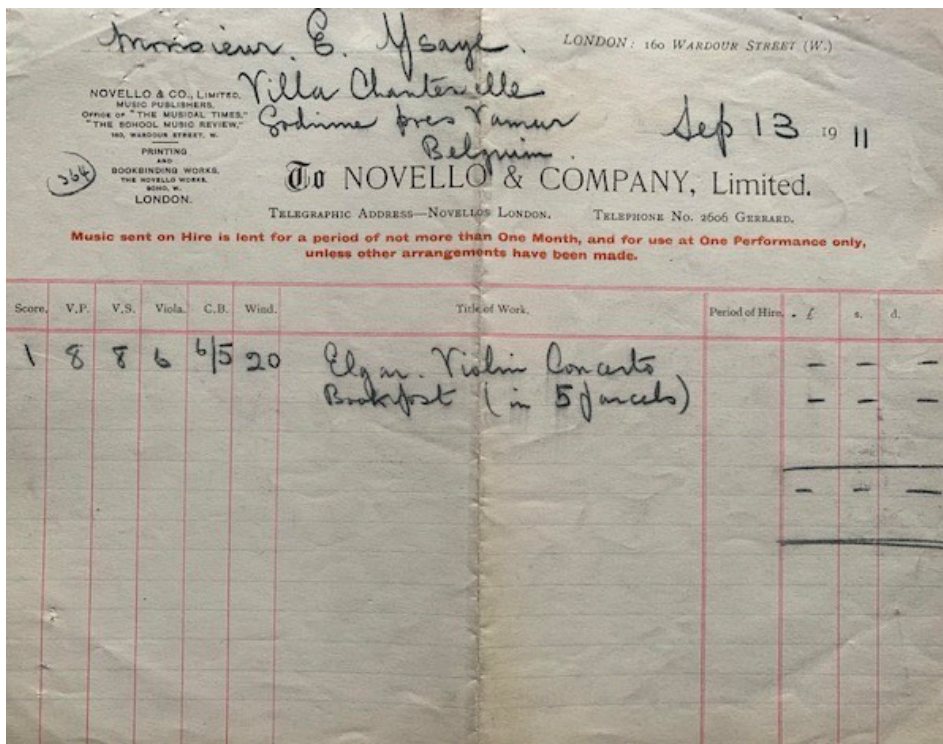 Monsieur. E. Ysaye.
Villa Chanterelle
Godinne pres Namur
Belgium.
LONDON: 160 WARDOUR STREET (W.)
Sep 13 1911
NOVELLO & CO., LIMITED.
MUSIC PUBLISHERS.
OFFICE OF "THE MUSICAL TIMES,"
"THE SCHOOL MUSIC REVIEW,"
160, WARDOUR STREET, W.
PRINTING
AND
BOOKBINDING WORKS.
THE NOVELLO WORKS.
SOHO, W.
LONDON.
264
To NOVELLO & COMPANY, Limited.
TELEGRAPHIC ADDRESS—NOVELLOS LONDON. TELEPHONE NO. 2606 GERRARD.
Music sent on Hire is lent for a period of not more than One Month, and for use at One Performance only,
unless other arrangements have been made.
Score. V.P. V.S. Viola. C.B. Wind. Title of Work. Period of Hire. £ s. d.
1 8 8 6 6/5 20 Elgar. Violin Concerto – – –
Bookpost (in 5 parcels) – – –
– – –